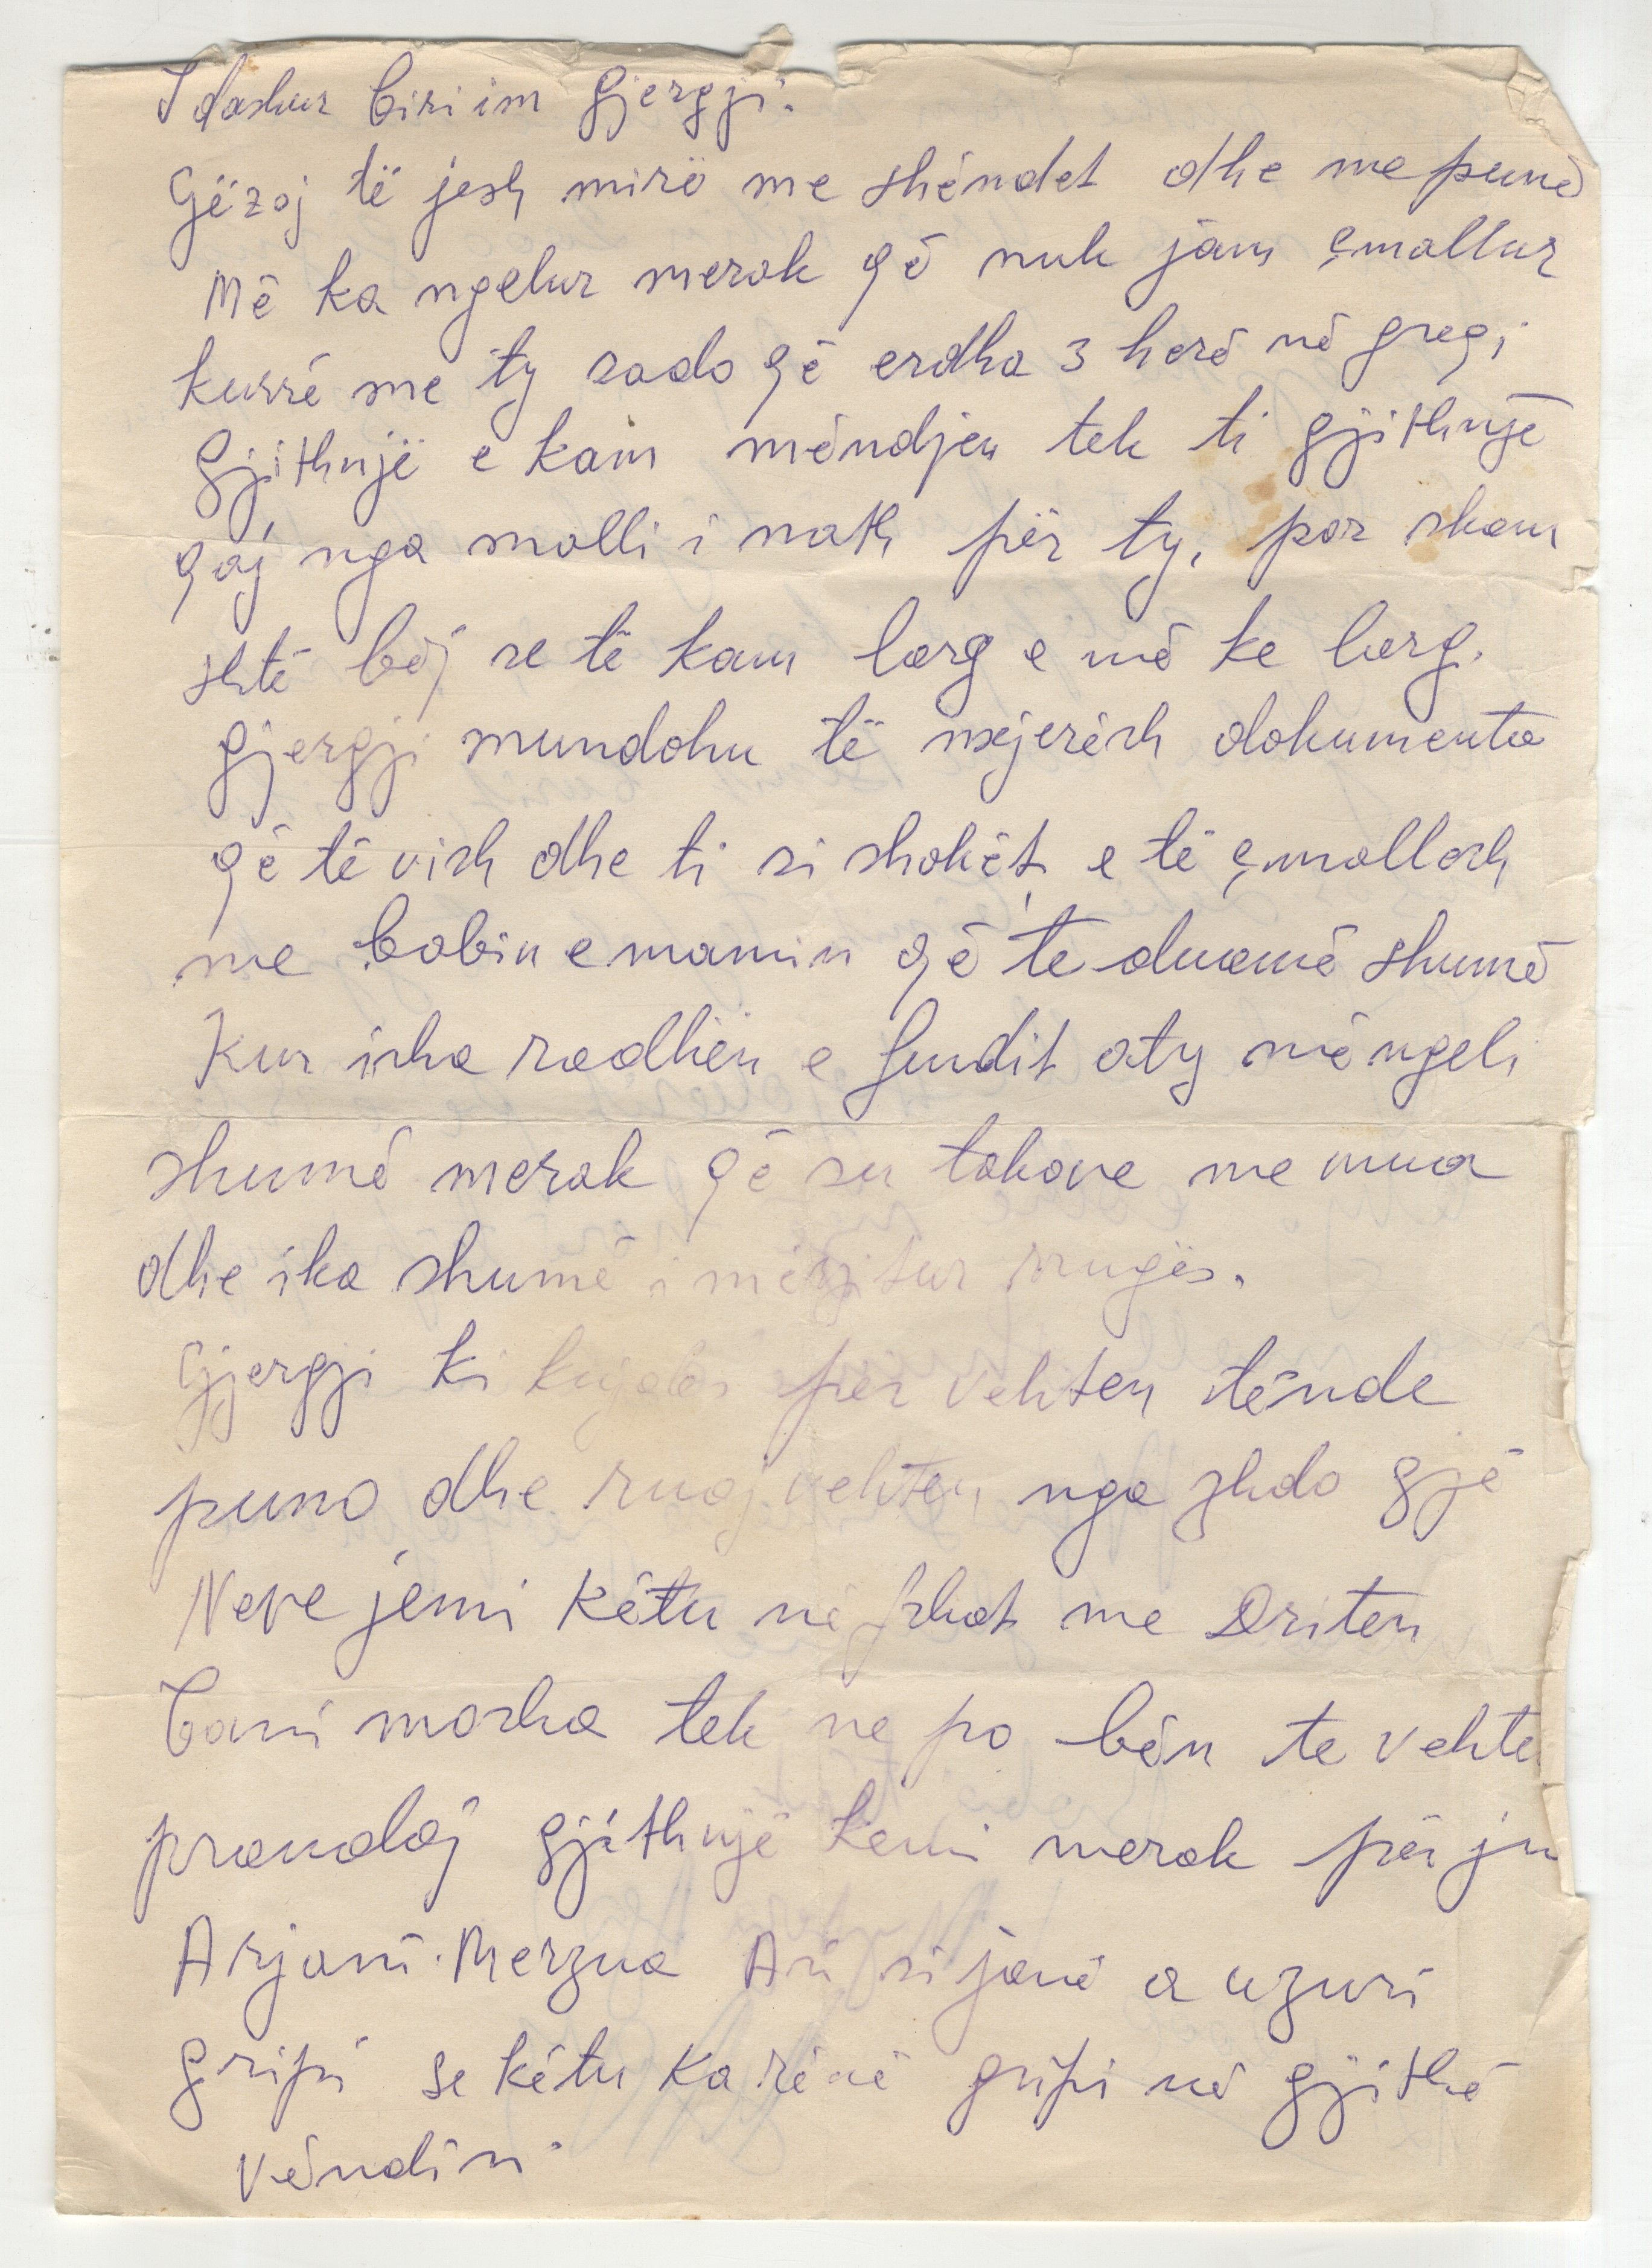 I dashur biri im Gjergji.
Gëzoj të jesh mirë me shëndet dhe me punë
Më ka ngelur merak që nuk jam çmallur
kurrë me ty sado që erdha 3 herë në greqi
Gjithnjë e kam mëndjen tek ti gjithnjë
qaj nga malli i math për ty, por skam
shtë bëj se të kam larg e më ke larg.
Gjergji mundohu të nxjerësh dokumenta
që të vish dhe ti si shokët e të çmallesh
me babin e mamin që te duamë shumë
Kur isha radhën e fundit aty më ngeli
shumë merak që su takove me mua
dhe ika shumë i mërzitur rrugës.
Gjergji ki kujdes për vehten tënde
puno dhe ruaj vehten nga zhdo gjë
Neve jemi këtu në fshat me Driten
tek ne po bën te vehte
prandaj gjithnjë kemi merak për ju
Arjani. Merzua Ari si janë a uzuri
gripi se këtu ka rënë gripi në gjithë
vëndin.